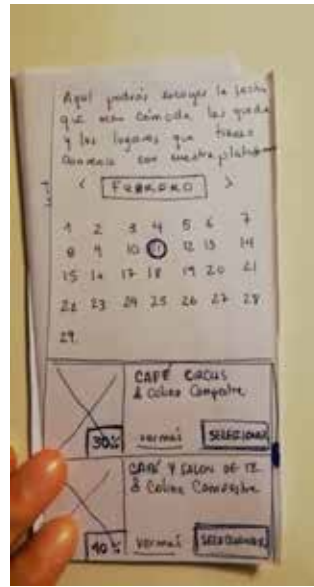 Aquí podrás escoger la fecha
que más cómoda les quede
y los lugares que tienen
convenio con nuestra plataforma
< FEBRERO >
1 2 3 4 5 6 7
8 9 10 11 12 13 14
15 16 17 18 19 20 21
22 23 24 25 26 27 28
29.
CAFÉ CIRCUS
Colina Campestre
30% ver más SELECIONAR
CAFÉ Y SALON DE TE
Colina Campestre
40% ver más SELECCIONAR